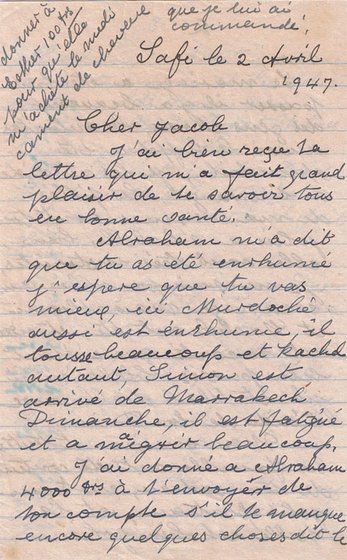 donner à
Esther 100 frs
pour qu'elle
m'achète le médi
cament de cheveux
que je lui ai
commandé,
Safi le 2 Avril
1947.
Cher Jacob
J'ai bien reçue ta
lettre qui m'a fait grand
plaisir de te savoir tous
en bonne santé.
Abraham m'a dit
que tu as été enrhumé
j'espere que tu vas
mieux, ici Murdoché
aussi est enrhumé, il
tousse beaucoup et Rachel
autant, Simon est
arrivé de Marrakech
Dimanche, il est fatigué
et a maigrir beaucoup,
J'ai donné a Abraham
4000 frs à t'envoyer de
ton compte s'il te manque
encore quelques choses dit le